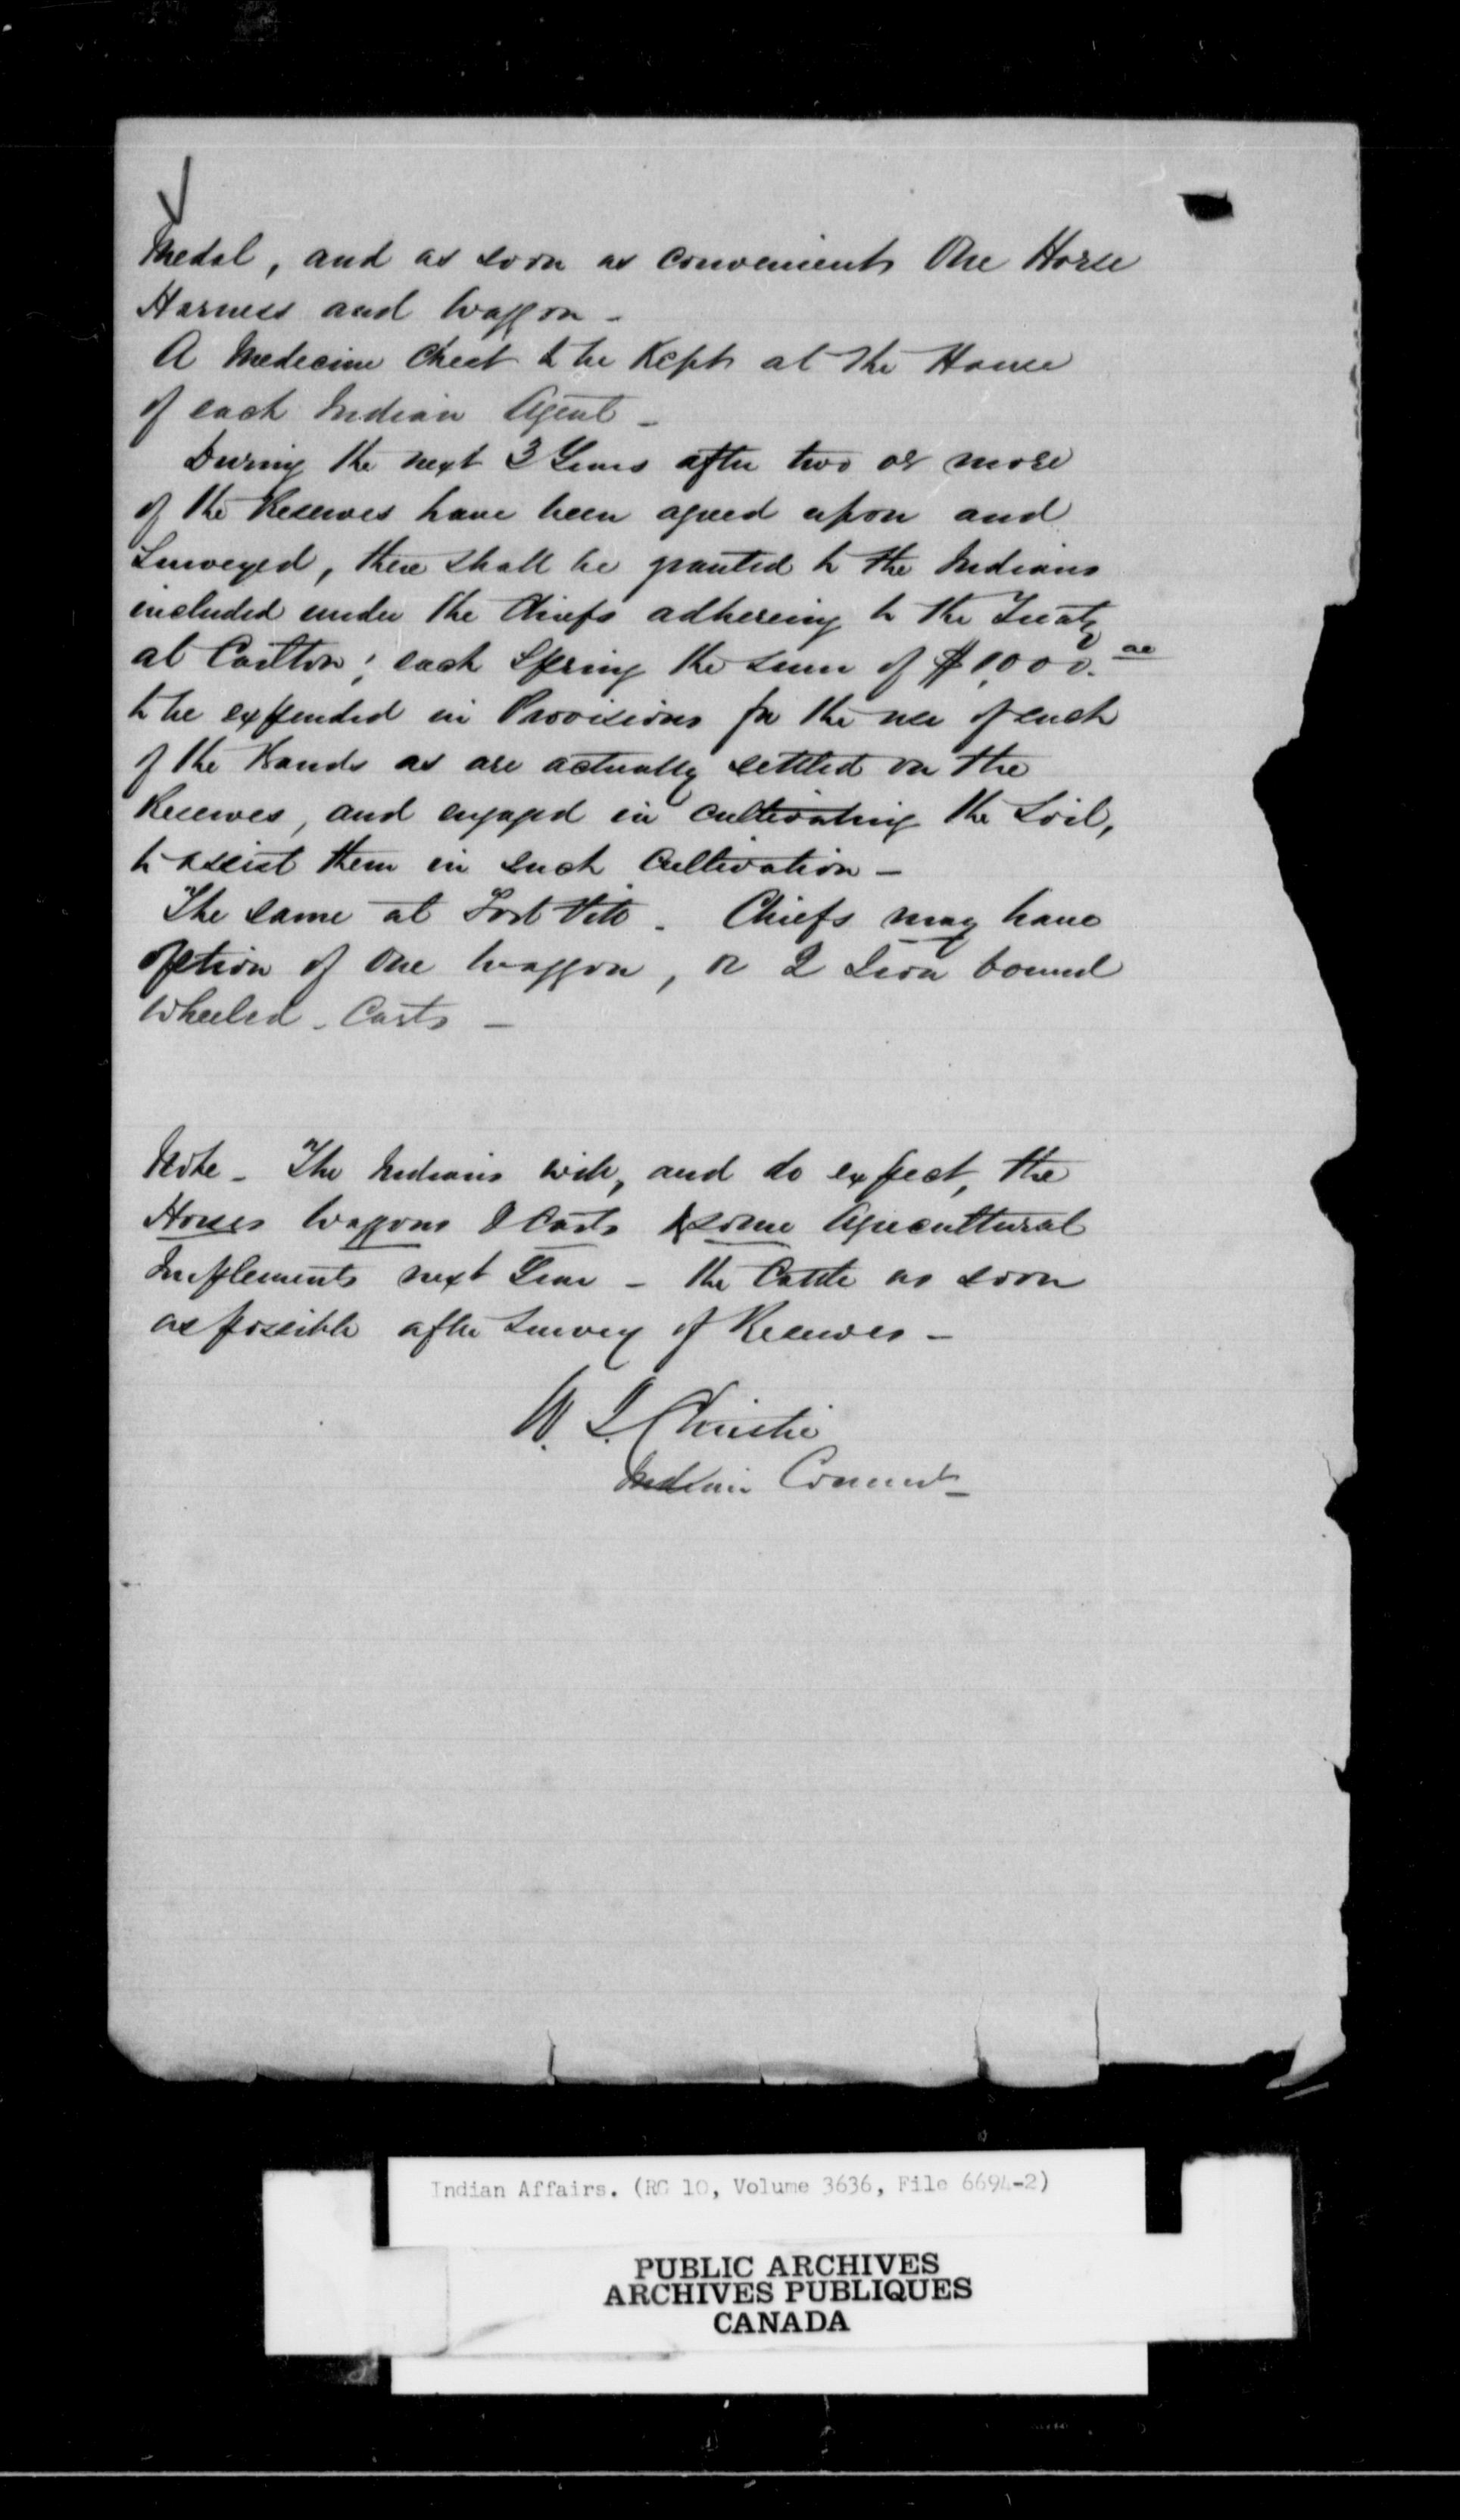 Medal, and as soon as convenient One Horse
Harness and Waggon -
A Medecine Chest to be Kept at the House
of each Indian Agent -
During the next 3 Years after two or more
of the Reserves have been agreed upon and
Surveyed, there shall be granted to the Indians
included under the Chiefs adhering to the Treaty
at Carlton; each Spring the sum of $1,000.00
to be expended in Provisions for the use of such
of the Bands as are actually settled on the
Reserves, and engaged in cultivating the Soil,
to assist them in such Cultivation -
The same at Fort Pitt - Chiefs may have
option of One Waggon, or 2 Iron bound
Wheeled - Carts -
Note - The Indians wish, and do expect, the
Horses Waggons & Carts & some Agricultural
Implements next Year - the Cattle as soon
as possible after Survey of Reserves -
W. J. Christie
Indian Commr -
Indian Affairs. (RG 10, Volume 3636, File 6694-2)
PUBLIC ARCHIVES
ARCHIVES PUBLIQUES
CANADA